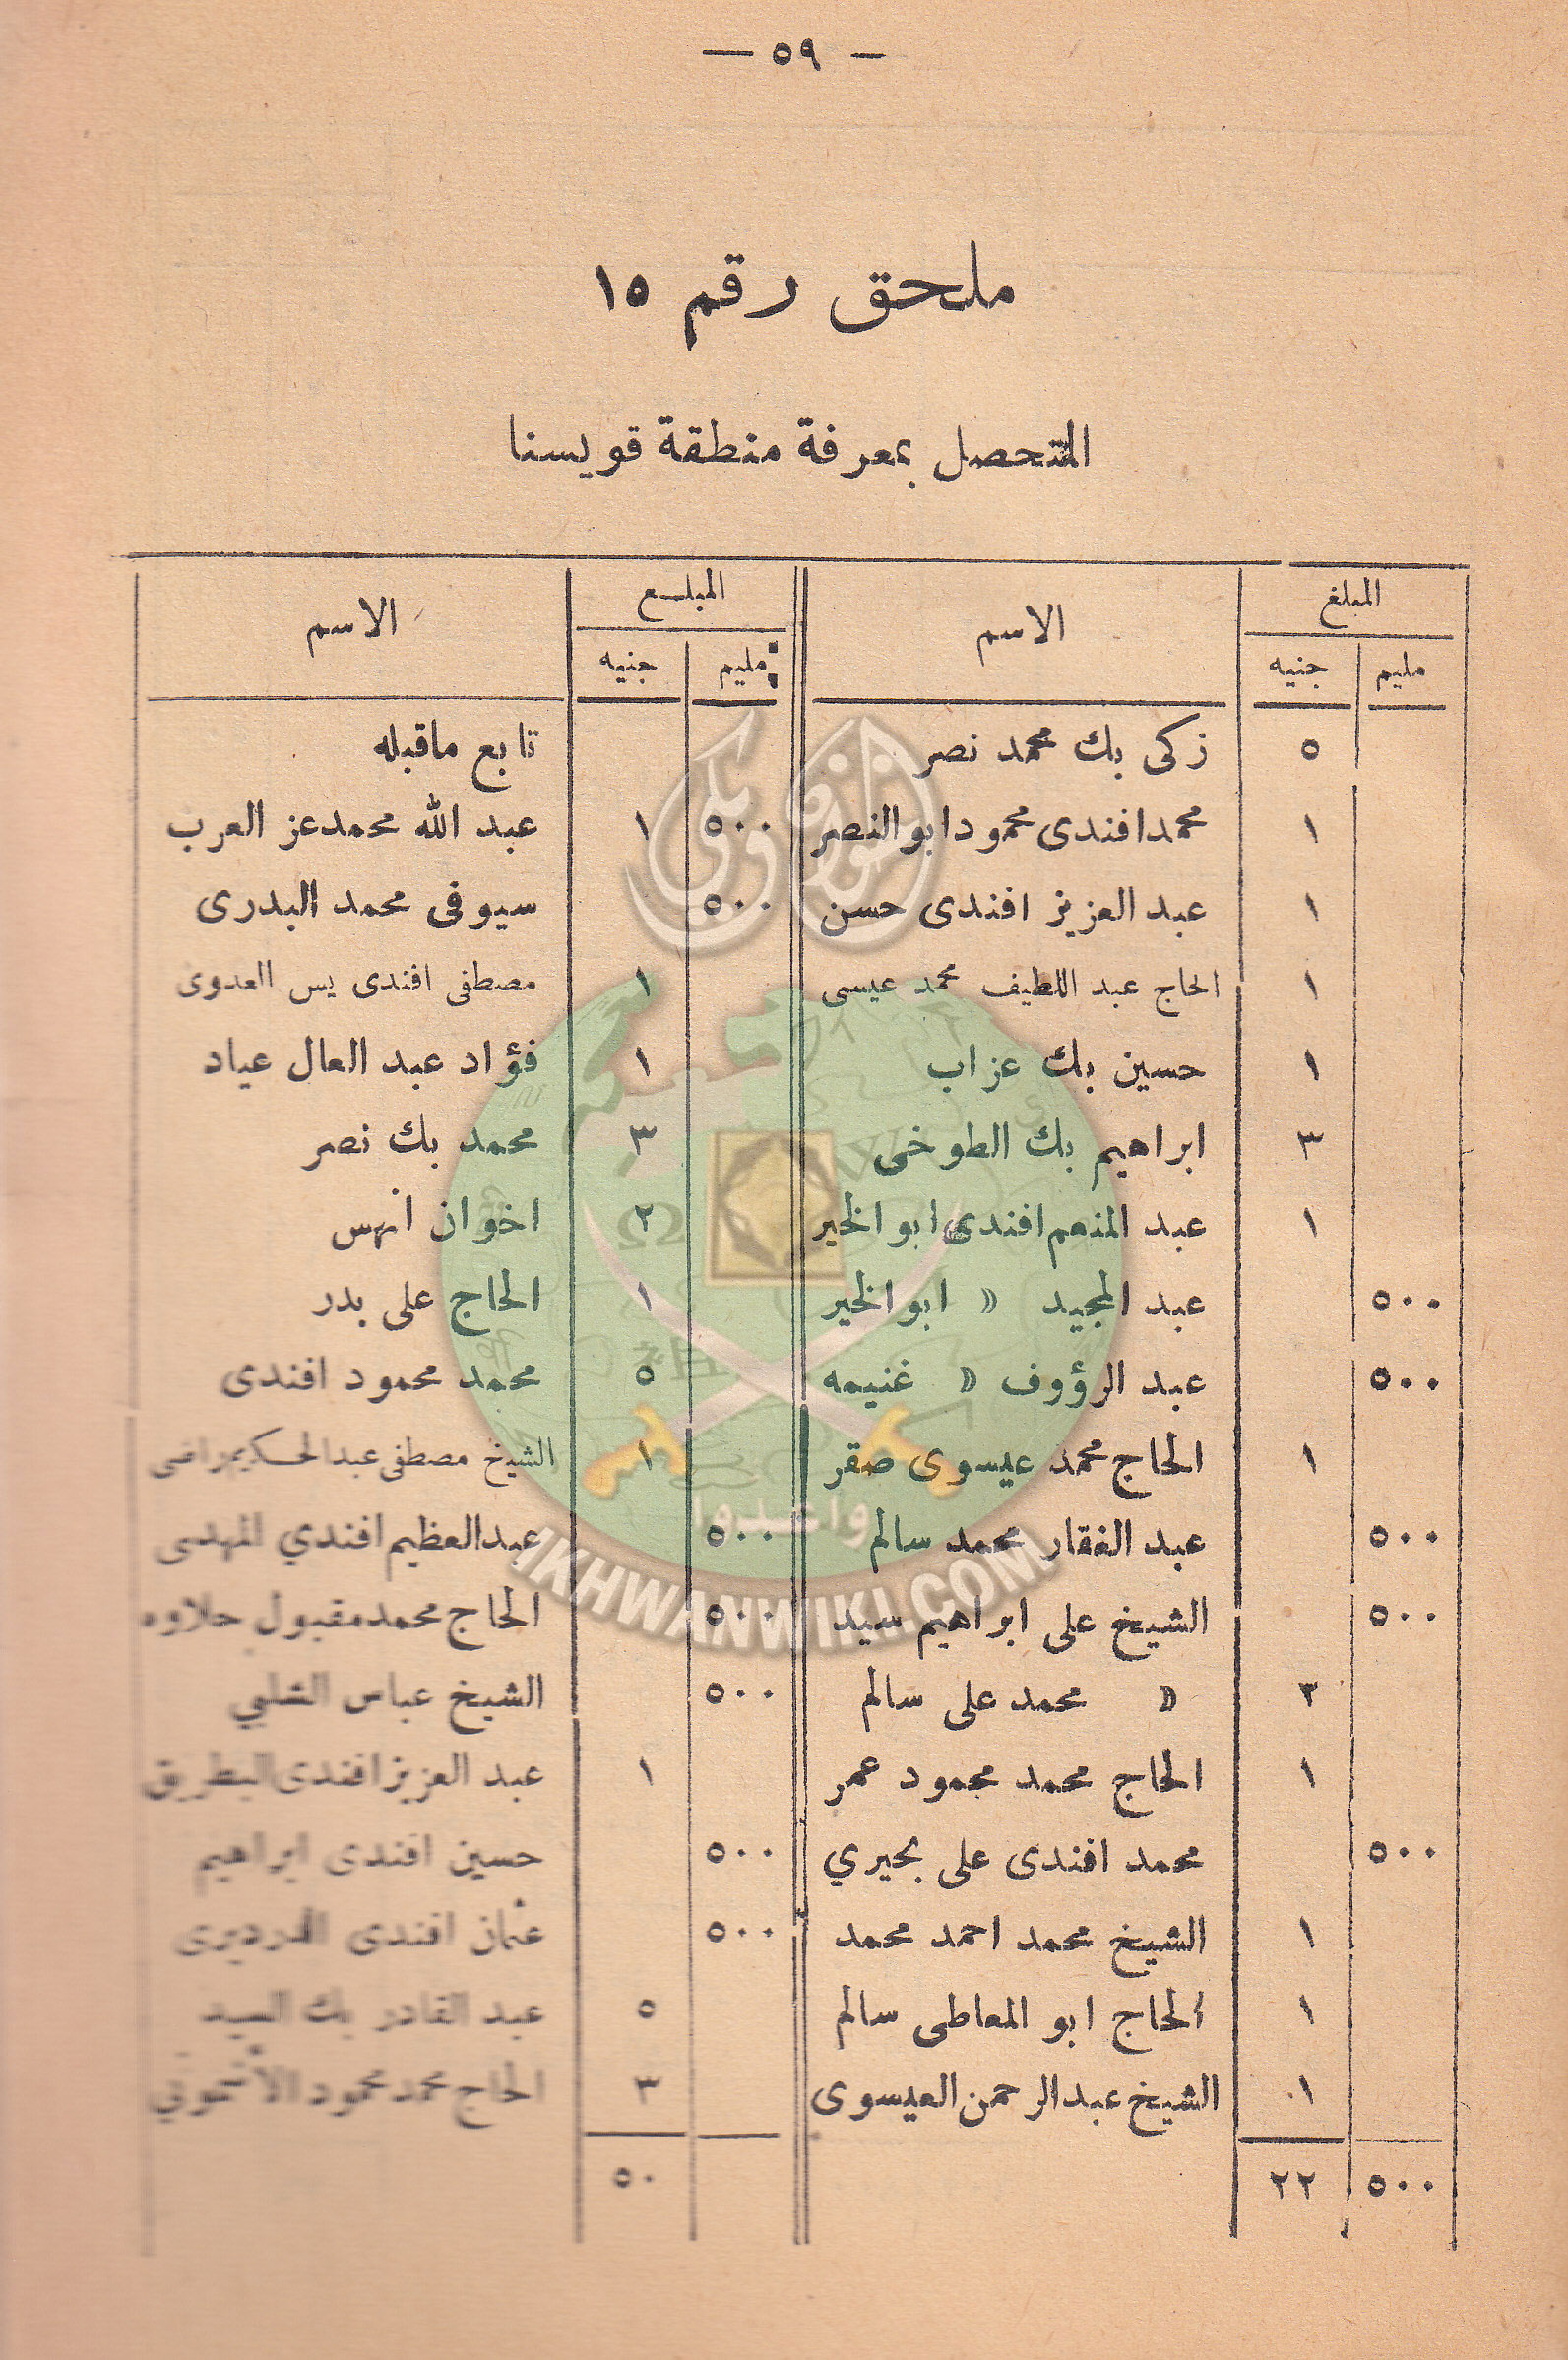 — ٥٩ —
ملحق رقم ١٥
المتحصل بمعرفة منطقة قويسنا
المبلغ الاسم المبلغ الاسم
مليم جنيه مليم جنيه
٥ زكى بك محمد نصر تابع ماقبله
١ محمد افندى محمود ابو النصر ٥٠٠ ١ عبد الله محمد عز العرب
١ عبد العزيز افندى حسن ٥٠٠ سيوفى محمد البدرى
١ الحاج عبد اللطيف محمد عيسى ١ مصطفى افندى يس العدوى
١ حسين بك عزاب ١ فؤاد عبد العال عياد
٣ ابراهيم بك الطوخى ٣ محمد بك نصر
١ عبد المنعم افندى ابو الخير ٢ اخوان انهس
٥٠٠ عبد المجيد » ابو الخير ١ الحاج على بدر
٥٠٠ عبد الرؤوف » غنيمه ٥ محمد محمود افندى
١ الحاج محمد عيسوى صقر ١ الشيخ مصطفى عبد الحكيم راضى
٥٠٠ عبد الغفار محمد سالم ٥٠٠ عبد العظيم افندي المهدى
٥٠٠ الشيخ على ابراهيم سيد ٥٠٠ الحاج محمد مقبول حلاوه
٣ » محمد على سالم ٥٠٠ الشيخ عباس الشلبي
١ الحاج محمد محمود عمر ١ عبد العزيز افندى البطريق
٥٠٠ محمد افندى على بحيري ٥٠٠ حسين افندى ابراهيم
١ الشيخ محمد احمد محمد ٥٠٠ عثمان افندى الدرديرى
١ الحاج ابو المعاطى سالم ٥ عبد القادر بك السيد
١ الشيخ عبد الرحمن العيسوى ٣ الحاج محمد محمود الأشمونى
٥٠٠ ٢٢ ٥٠
إخوان ويكي
واعدوا
IKHWANWIKI.COM